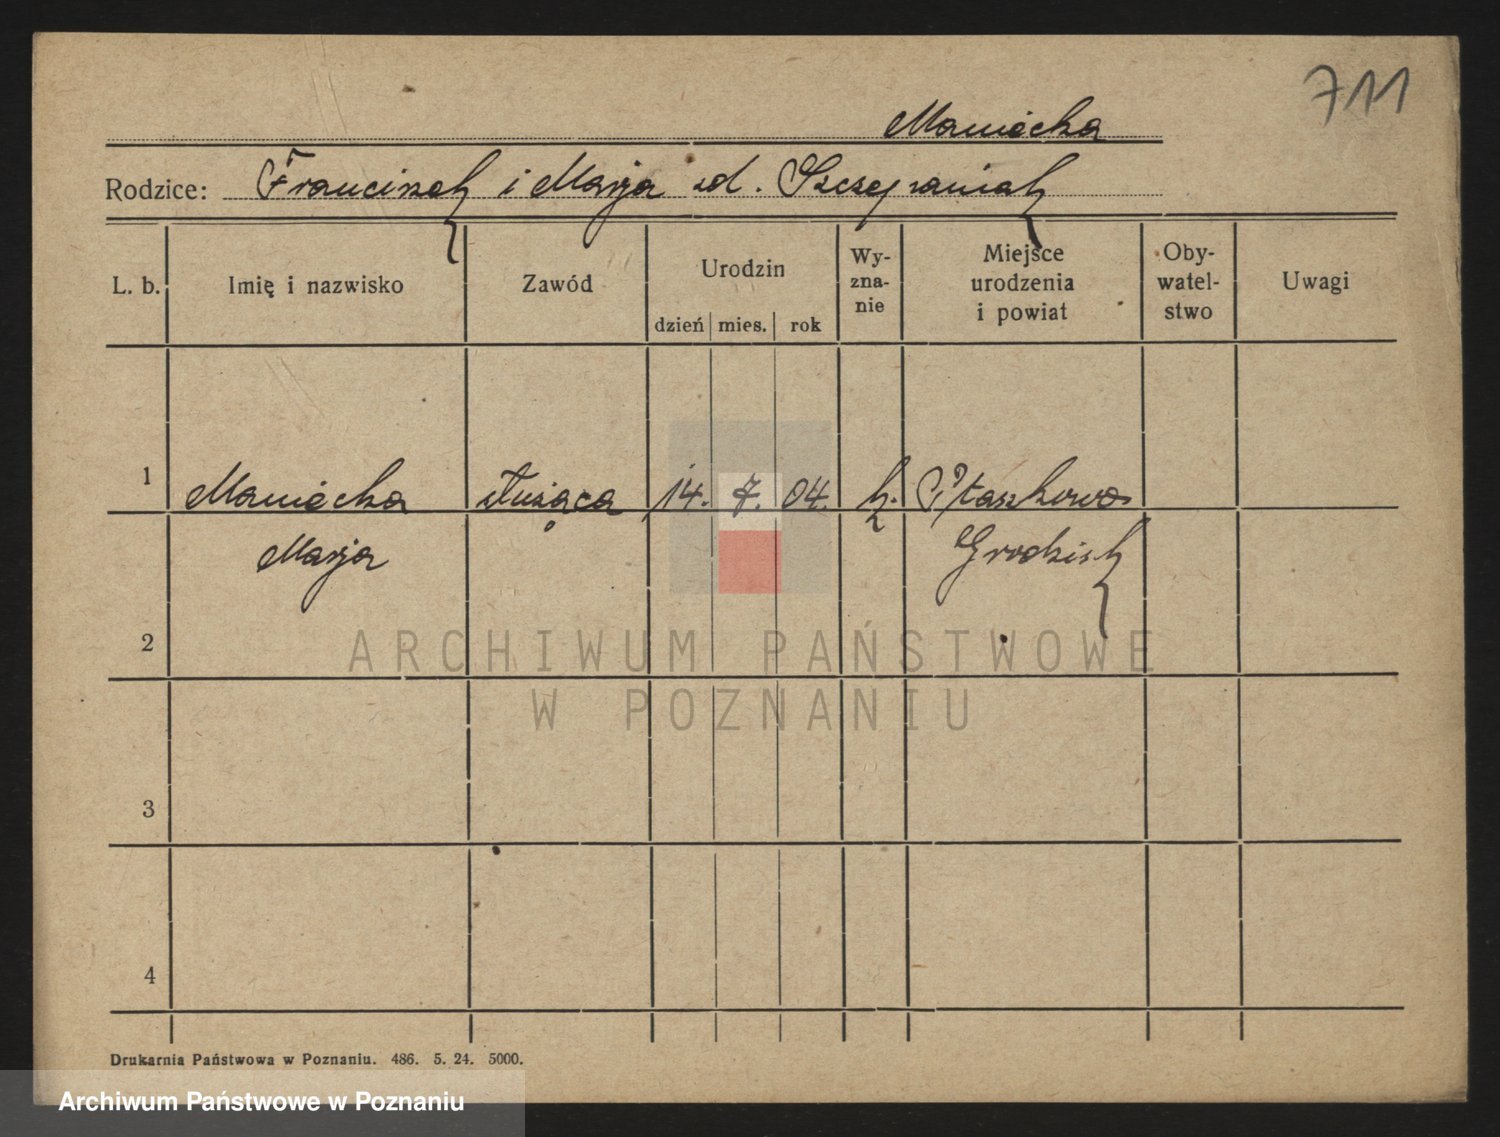 711
Maniecka
Rodzice: Franciszek i Marja zd. Szczepaniak
L. b. Imię i nazwisko Zawód Urodzin dzień mies. rok Wy-zna-nie Miejsce urodzenia i powiat Oby-watel-stwo Uwagi
1 Maniecka służąca 14. 7. 04. k. Ptaszkowo
Marja Grodzisk
2
ARCHIWUM PAŃSTWOWE
W POZNANIU
3
4
Drukarnia Państwowa w Poznaniu. 486. 5. 24. 5000.
Archiwum Państwowe w Poznaniu